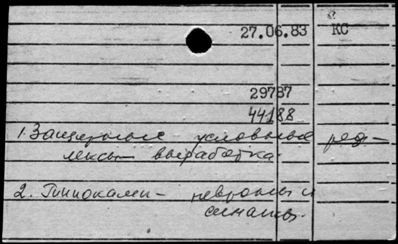 27.06.83 КС
29787
44188
1. Защитные условные реф-
лексы - выработка.
2. Гиппокамп - невроны и
синапсы.